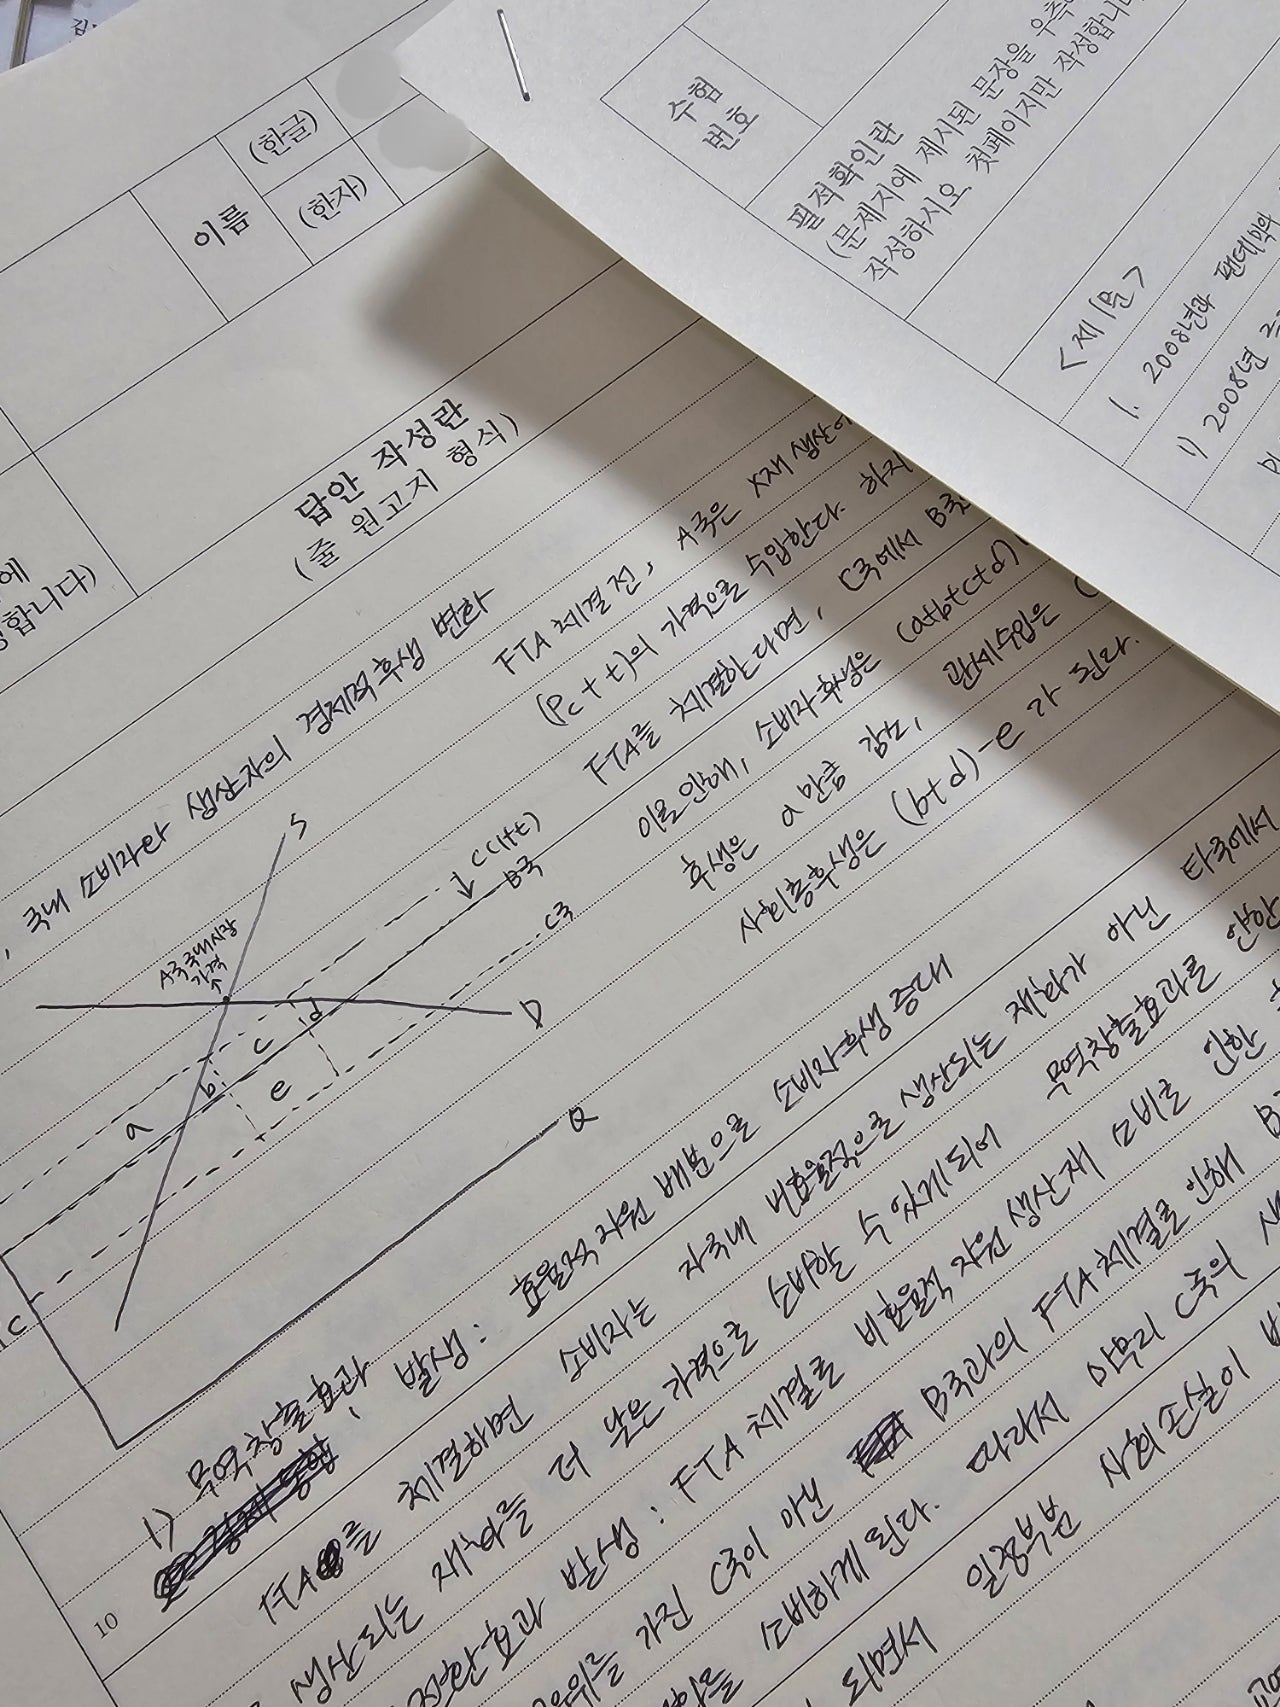 수험
번호
필적확인란
(문제지에 제시된 문장을 우측에
작성하시오 첫페이지만 작성합니다
<제1문>
1. 2008년과 팬데믹의
1) 2008년
이름
(한글)
(한자)
에
성합니다)
답안 작성란
(줄 원고지 형식)
, 국내 소비자와 생산자의 경제적후생 변화
FTA 체결 전, A국은 X재 생산에
(Pc + t)의 가격으로 수입한다. 하지
FTA를 체결한다면, C국에서 B국
이로 인해, 소비자 후생은 (a+b+c+d)
후생은 a만큼 감소, 관세수입은 (
사회총후생은 (b+d)-e가 된다.
S
A국국내시장
가격
C(1+t)
B국
C국
D
a
b
c
d
e
Q
C
1) 무역창출효과 발생: 효율적 자원 배분으로 소비자후생 증대
FTA를 체결하면 소비자는 자국내 비효율적으로 생산되는 재화가 아닌 타국에서
생산되는 재화를 더 낮은 가격으로 소비할 수 있게되어 무역창출효과를
전환효과 발생: FTA 체결로 비효율적 자원 생산재 소비로 인한
우위를 가진 C국이 아닌 B국과의 FTA체결로 인해 B
소비하게 된다. 따라서 아무리 C국의
되면서 일정부분 사회손실이
10